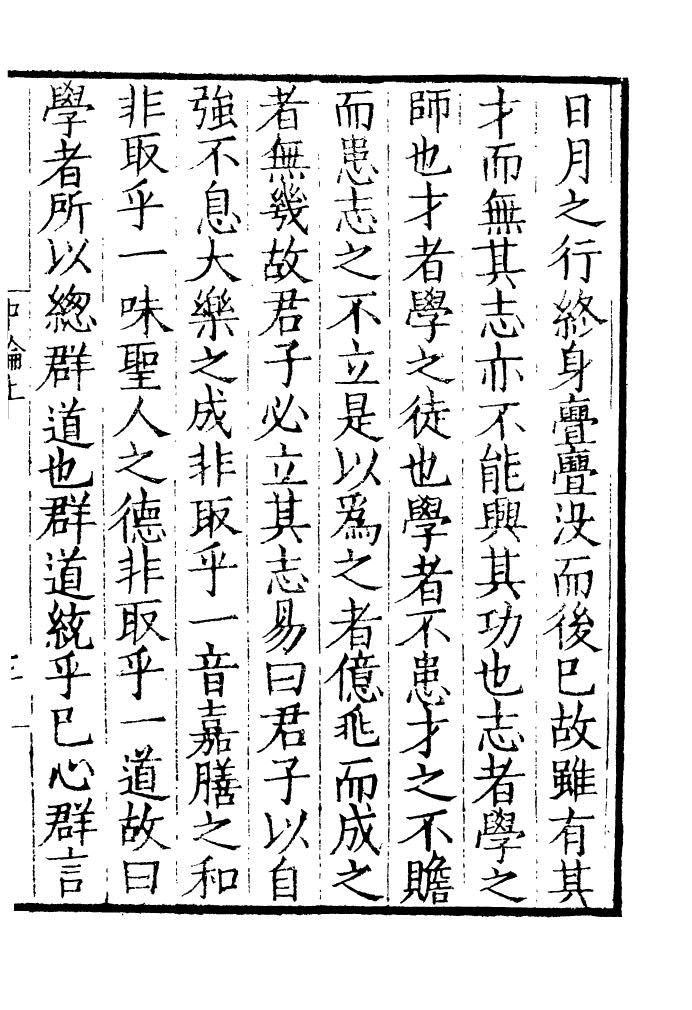 日月之行終身亹亹没而後已故雖有其
才而無其志亦不能興其功也志者學之
師也才者學之徒也學者不患才之不贍
而患志之不立是以爲之者億兆而成之
者無幾故君子必立其志易曰君子以自
強不息大樂之成非取乎一音嘉膳之和
非取乎一味聖人之德非取乎一道故曰
學者所以總群道也群道統乎已心群言
中論上